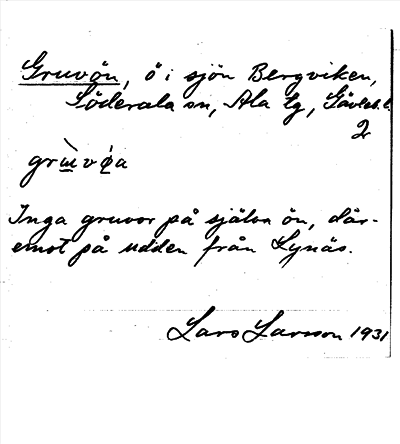 Gruvön, ö i sjön Bergviken,
Söderala sn, Ala tg, Gävleb. l.
2
grɯ̀vøa
Inga gruvor på själva ön, där-
emot på udden från Lynäs.
Lars Larsson 1931